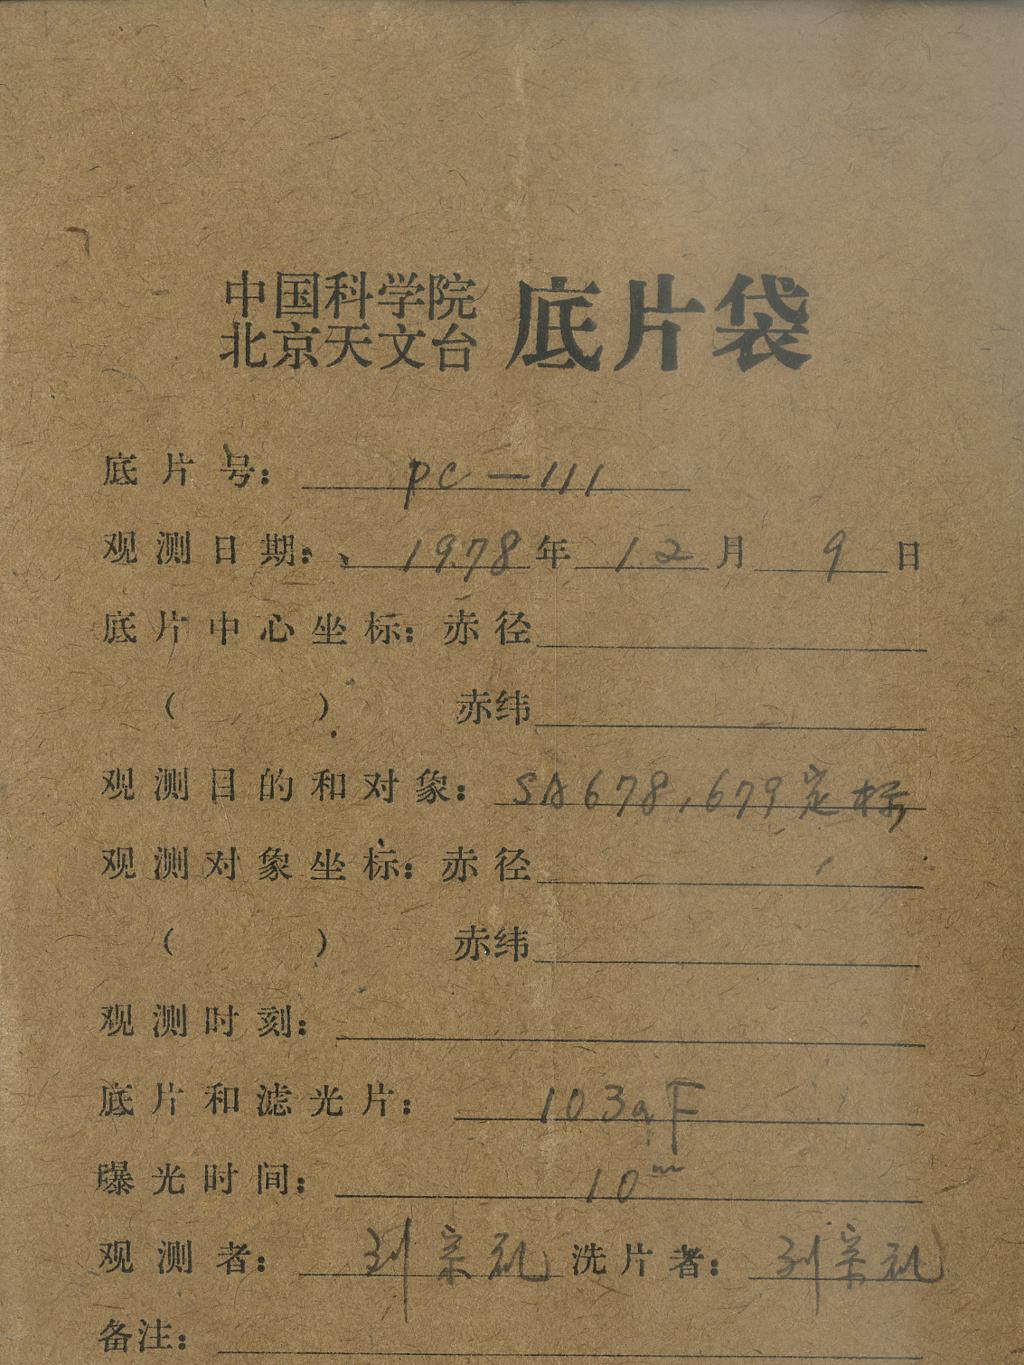 中国科学院
北京天文台
底片袋
底片号： PC-111
观测日期： 1978年 12月 9日
底片中心坐标：赤径
（ ） 赤纬
观测目的和对象： SA678,679定标
观测对象坐标：赤径
（ ） 赤纬
观测时刻：
底片和滤光片： 103aF
曝光时间： 10ᵐ
观测者： 刘宗礼 洗片者： 刘宗礼
备注：